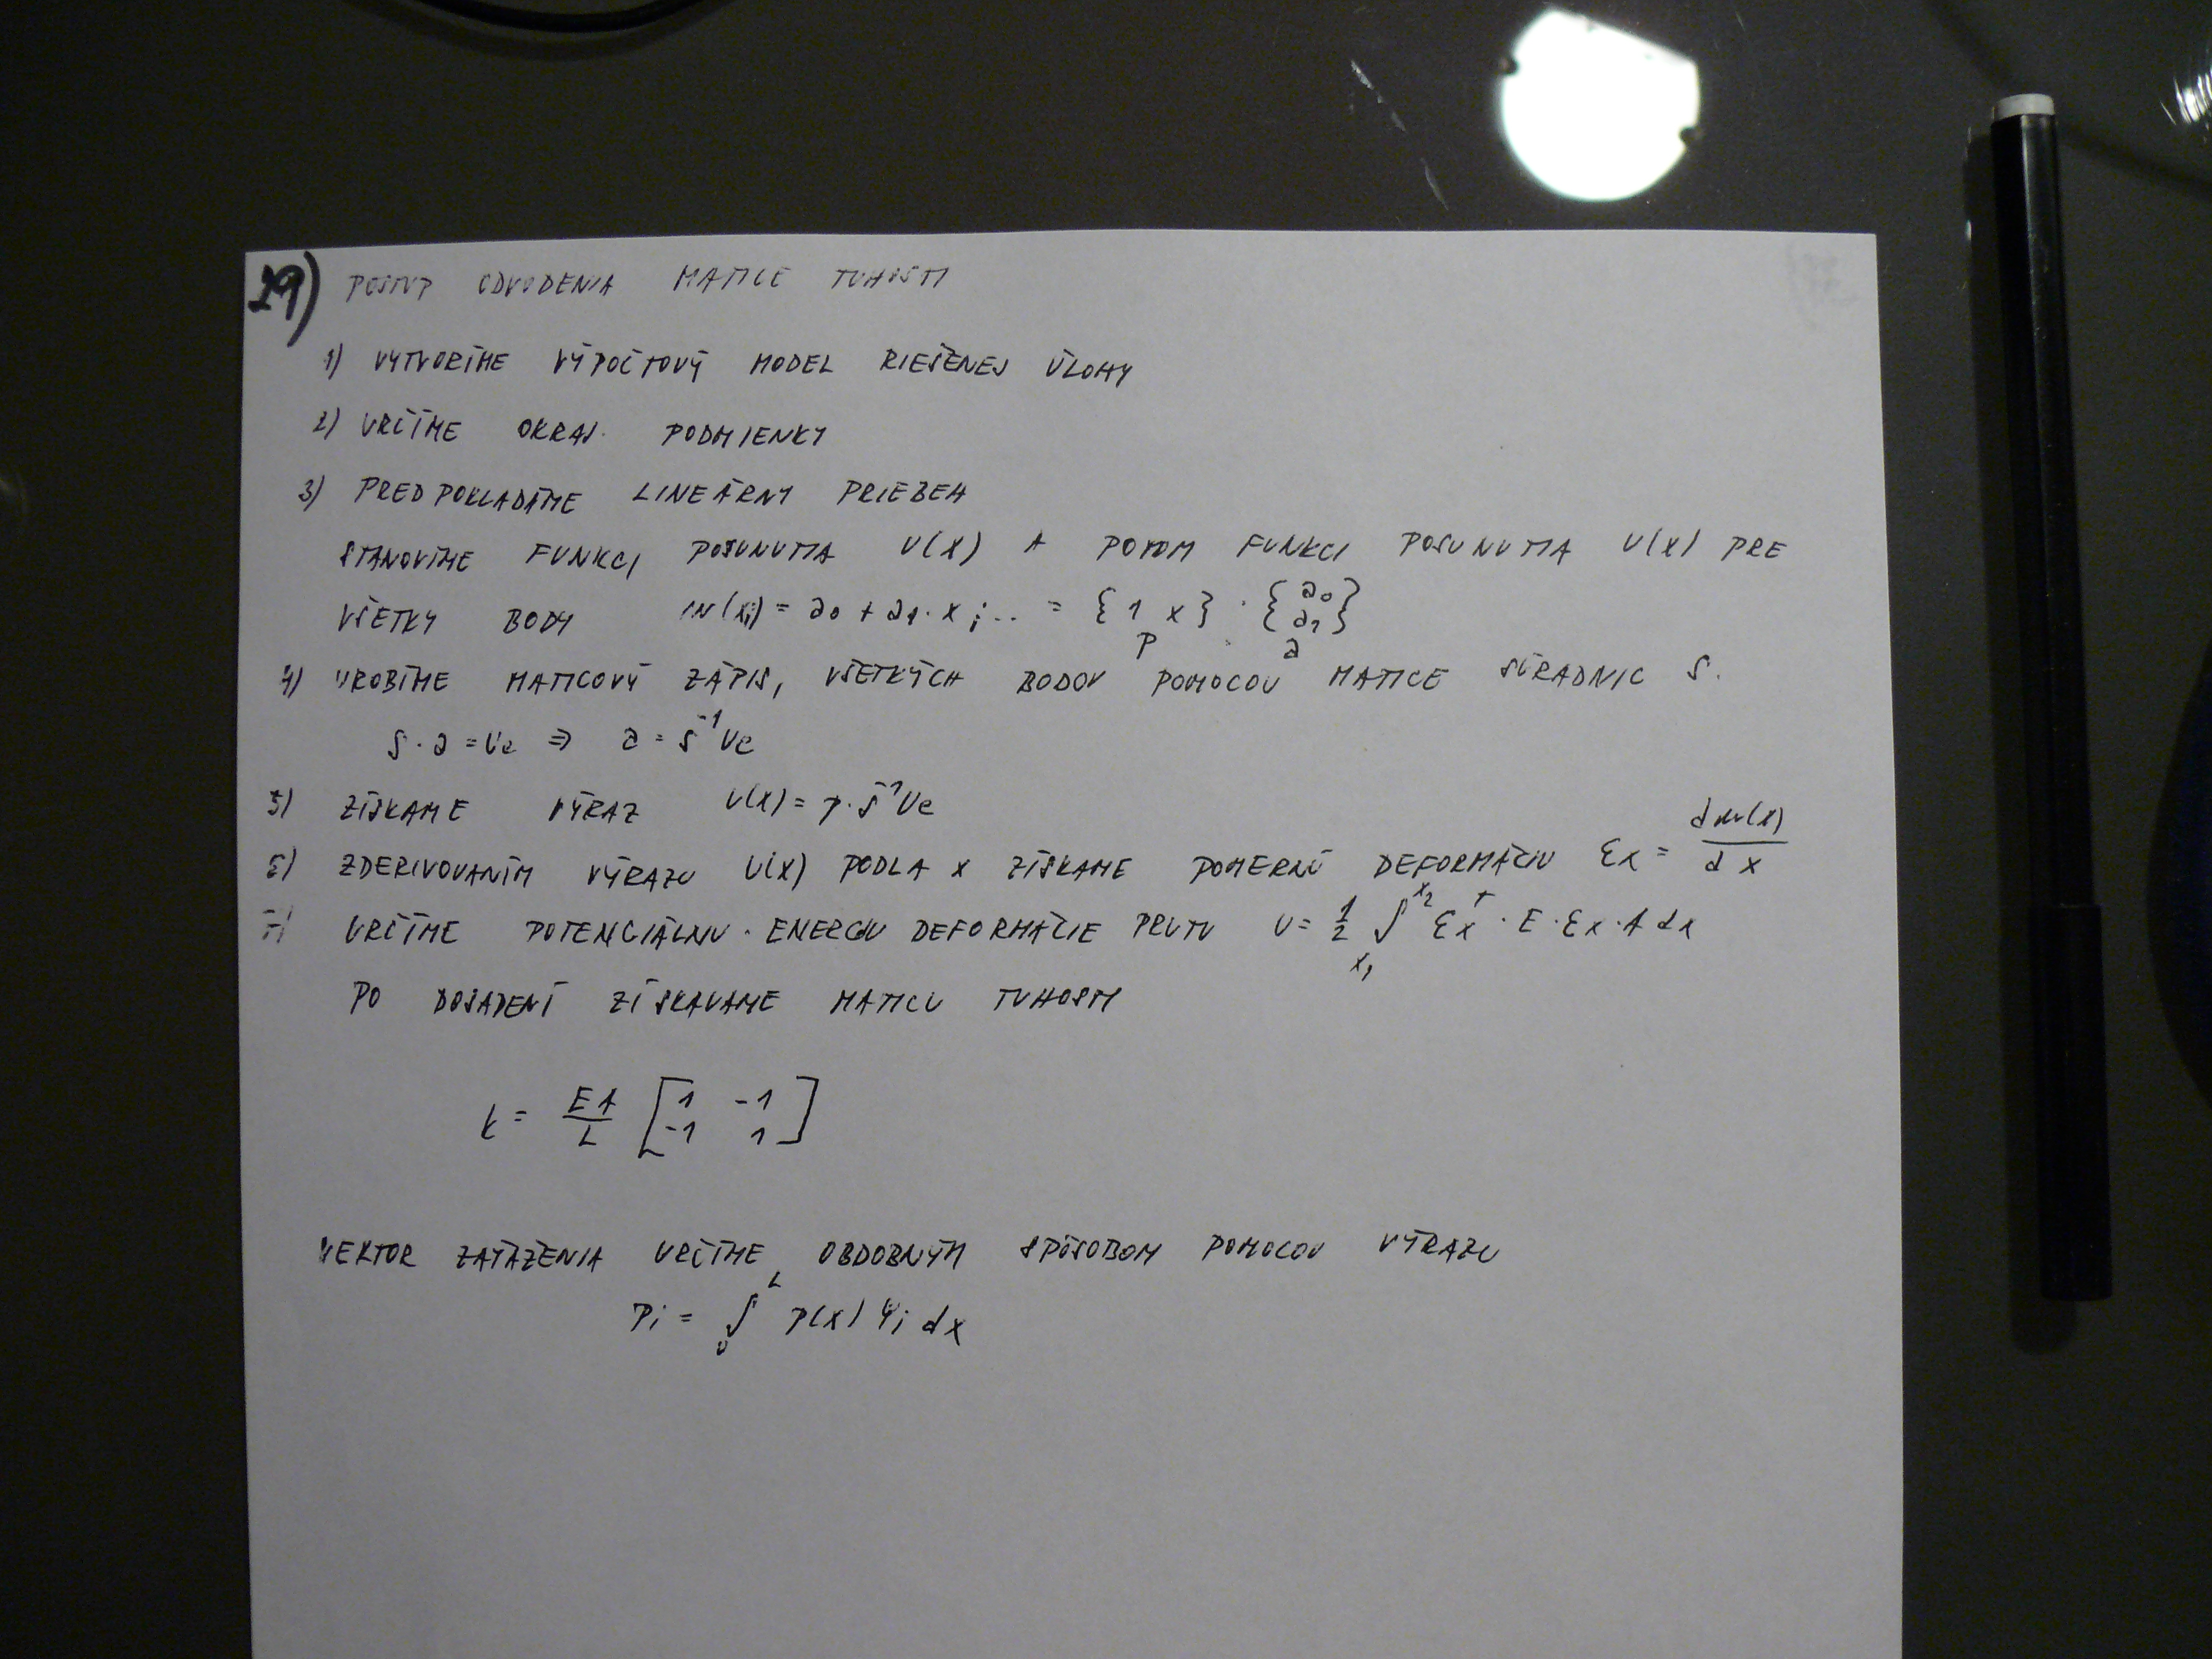 29) POSTUP ODVODENIA MATICE TUHOSTI
1) VYTVORÍME VÝPOČTOVÝ MODEL RIEŠENEJ ÚLOHY
2) URČÍME OKRAJ. PODMIENKY
3) PREDPOKLADÁME LINEÁRNY PRIEBEH
STANOVÍME FUNKCI POSUNUTIA U(X) A POTOM FUNKCI POSUNUTIA U(X) PRE
VŠETKY BODY u(xi) = a0 + a1.x;.. = {1 x} . {a0 a1}
P a
4) UROBÍME MATICOVÝ ZÁPIS, VŠETKÝCH BODOV POMOCOU MATICE SÚRADNIC S.
S.a = Ue ⇒ a = S⁻¹Ue
5) ZÍSKAME VÝRAZ U(X) = p.S⁻¹Ue
6) ZDERIVOVANÍM VÝRAZU U(X) PODLA X ZÍSKAME POMERNÚ DEFORMÁCIU Ɛx = du(x)/dx
7) URČÍME POTENCIÁLNU . ENERGIU DEFORMÁCIE PRUTU U = 1/2 ∫x1 x2 Ɛx^T . E . Ɛx . A dx
PO DOSADENÍ ZÍSKAVAME MATICU TUHOSTI
k = EA/L [1 -1
-1 1]
VEKTOR ZAŤAŽENIA URČÍME OBDOBNÝM SPÔSOBOM POMOCOU VÝRAZU
Pi = ∫0 L p(x) Ψi dx